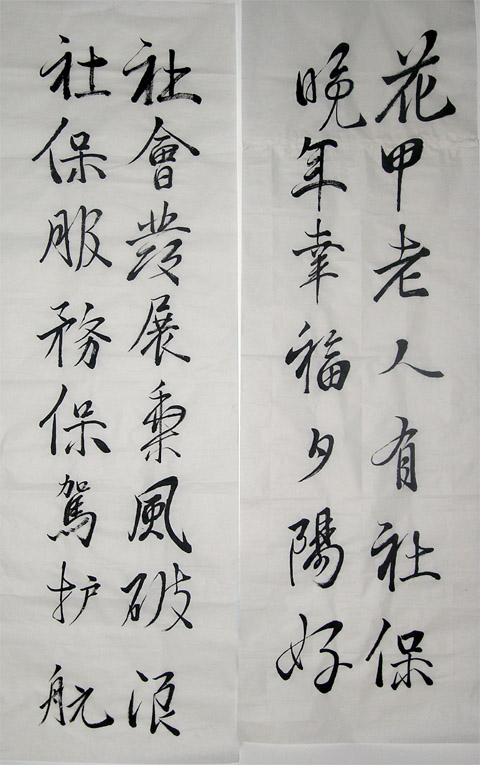 花甲老人有社保
晚年幸福夕陽好
社會發展乘風破浪
社保服務保駕护航